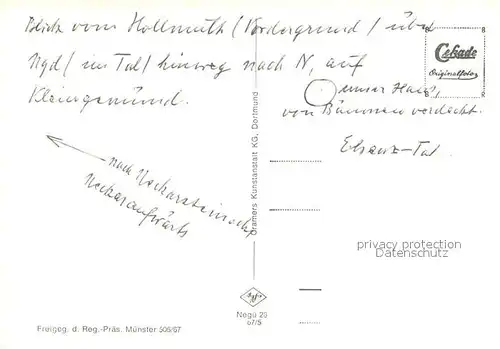 Blick vom Hollmuth (Vordergrund) über
Ngd (im Tal) hinweg nach N, auf
Kleingemünd.
unser Haus,
von Bäumen verdeckt.
Elsenz-Tal.
nach Neckarsteinach
Neckaraufwärts
Cekade
Originalfoto
Cramers Kunstanstalt KG, Dortmund
privacy protection
DDR-AnsichtskartenLexikon
Agfa
Negü 25
67/5
Freigeg. d. Reg.-Präs. Münster 505/67